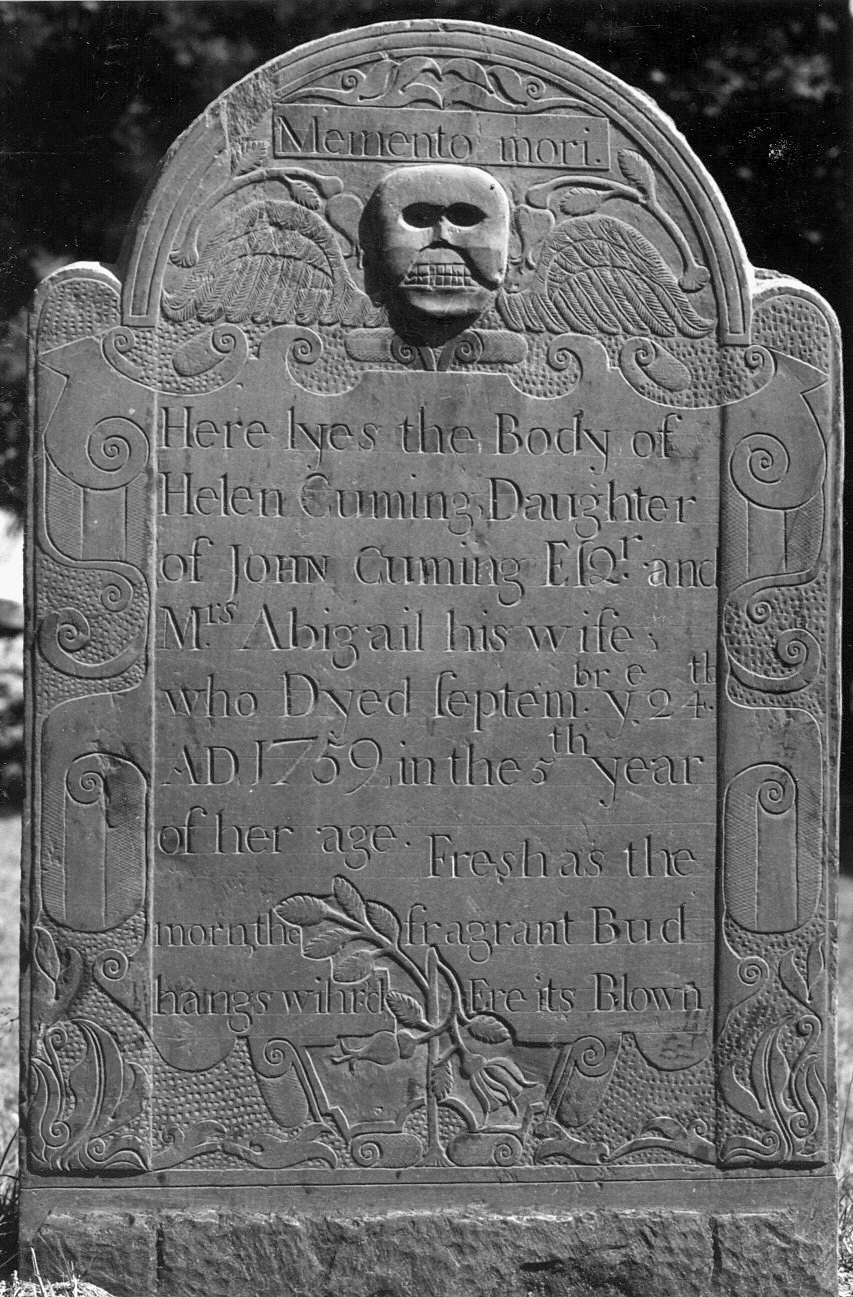 Memento mori.
Here lyes the Body of
Helen Cuming, Daughter
of JOHN Cuming Eſqr. and
Mrs Abigail his wife,
who Dyed ſeptembr ye 24th.
AD 1759, in the 5th year
of her age. Fresh as the
morn, the fragrant Bud
hangs wihrd Ere its Blown